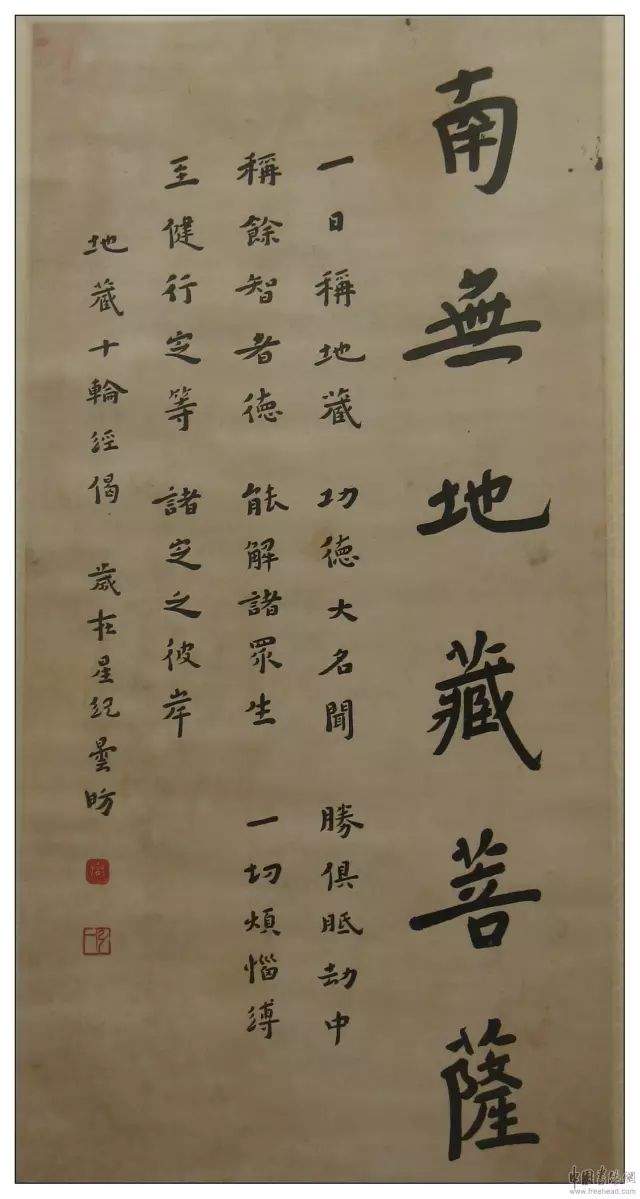 南無地藏菩薩
一日稱地藏 功德大名聞 勝俱胝劫中
稱餘智者德 能解諸眾生 一切煩惱縛
至健行定等 諸定之彼岸
地藏十輪經偈 歲在星紀曇昉
中國書法網
www.freehead.com